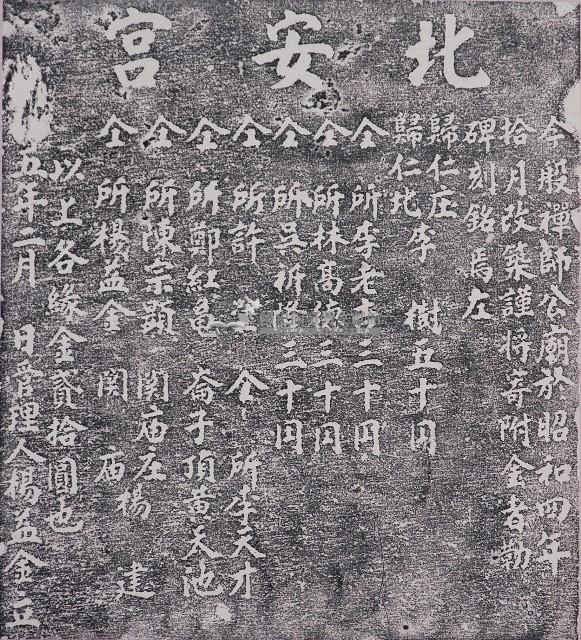 北安宮
今般禪師公廟於昭和四年
拾月改築謹將寄附金者勒
碑刻銘焉左
歸仁庄
歸仁北李 樹五十円
仝 所李老 二十円
仝 所林高德三十円
仝 所吳祈隆三十円
仝 所許 仝 所李天才
仝 所鄭紅 崙子頂黃天池
仝 所陳宗顕 関庙庄楊
仝 所楊益金 関 庙 建
以上各緣金貳拾圓也
五年二月 日管理人楊益金立